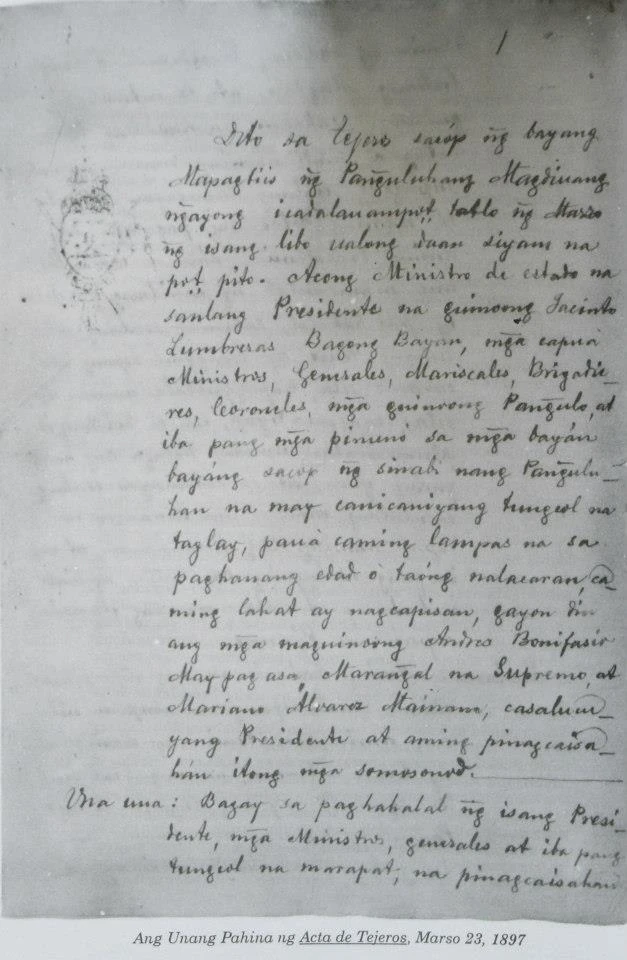 1
Dito sa Tejero sacóp ng̃ bayang
Mapagtiis ng̃ Pang̃uluhang Magdiuang
ng̃ayong icadalauampo't, tatlo ng̃ Marzo
ng̃ isang libo ualong daan siyam na
po't, pito. Acong Ministro de estado na
sanlang Presidente na guinoong Jacinto
Lumbreras Bagong Bayan, mg̃a capuà
Ministros, Generales, Mariscales, Brigadie-
res, Coroneles, mg̃a guinoong Pang̃ulo, at
iba pang mg̃a pinunò sa mg̃a bayán
bayáng sacop ng̃ sinabi nang Pang̃ulu-
han na may canicaniyang tungcol na
taglay, pauà caming lampas na sa
paghanang edad ò taóng nalacaran, ca-
ming lahat ay nagcapisan, gayon din
ang mg̃a maguinoong Andres Bonifasio
May pag asa, Marang̃al na Supremo, at
Mariano Álvarez Mainam, casalucu-
yang Presidente at aming pinagcaisa-
hán itong mg̃a somosonod.
Una una: Bagay sa paghahalal ng̃ isang Presi-
dente, mg̃a Ministros, generales at iba pang
tungcol na marapat, na pinagcaisahan
Ang Unang Pahina ng Acta de Tejeros, Marso 23, 1897